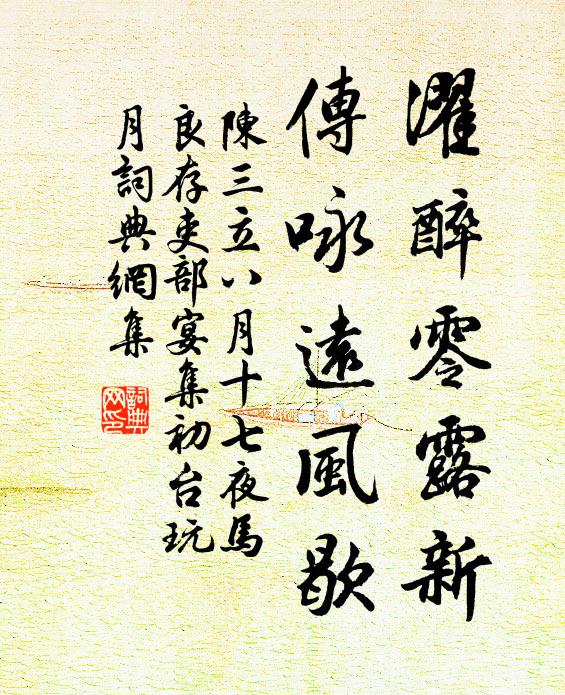 濯醉零露新
傳咏遠風歇
陳三立八月十七夜馬
良存吏部宴集初台玩
月詞典網集
詞典
网印